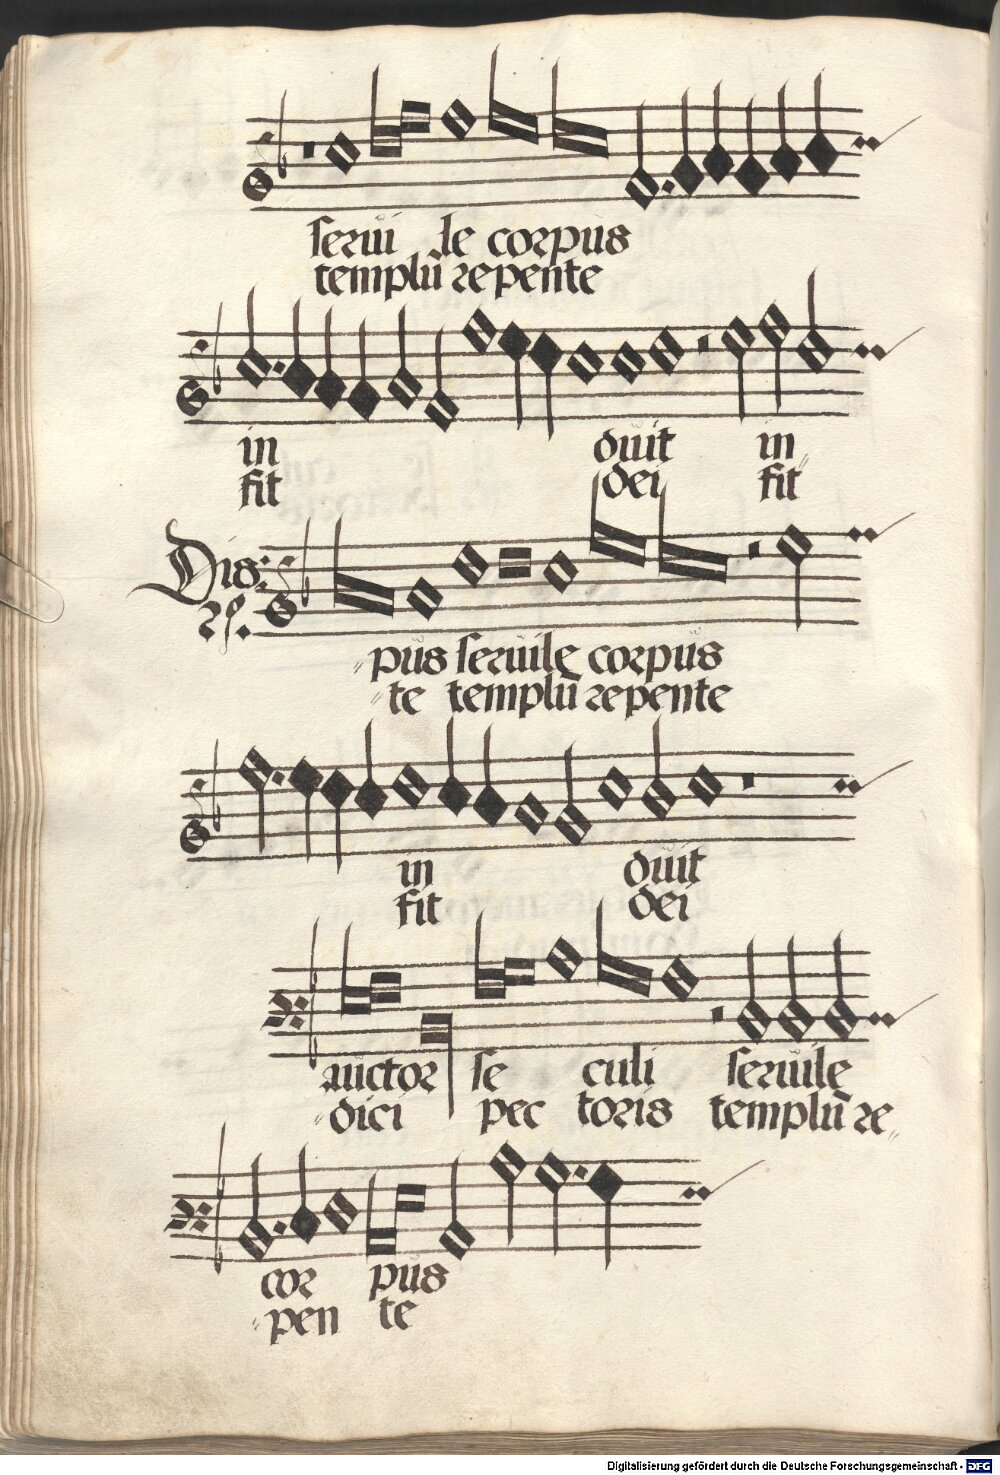 serui le corpus
templū repente
in duit in
fit dei fit
Dis:
2ꝰ.
pus seruile corpus
te templū repente
in duit
fit dei
auctor se culi seruile
dici pec toris templū re
cor pus
pen te
Digitalisierung gefördert durch die Deutsche Forschungsgemeinschaft - DFG